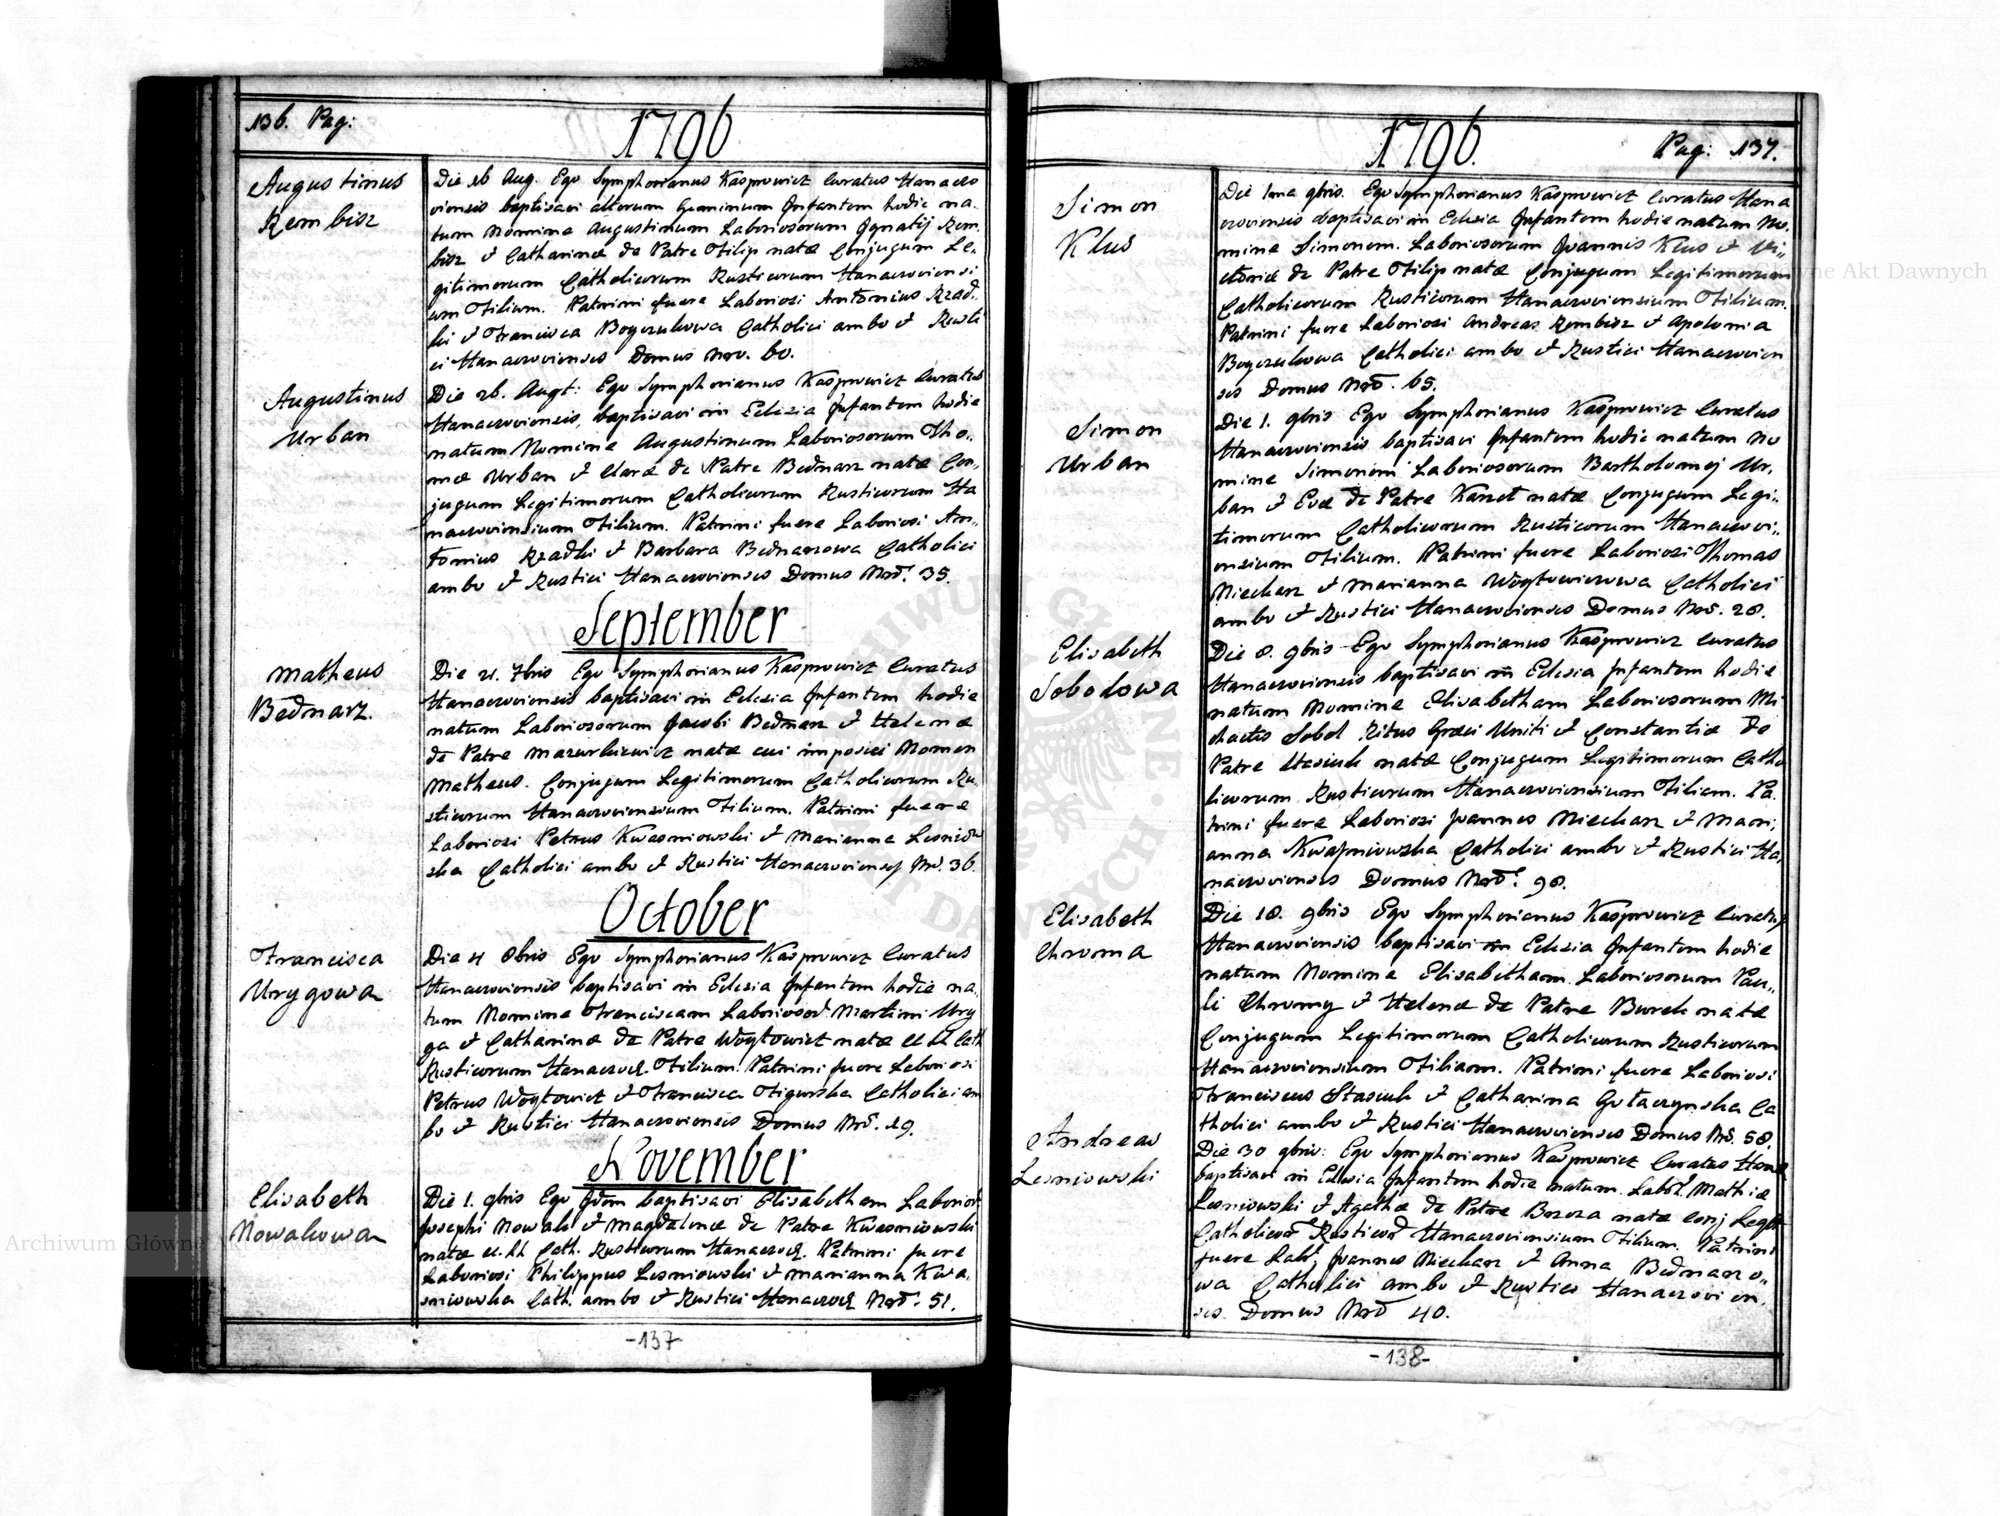 136. Pag:
1796
Augustinus
Rembisz
Die 26 Aug. Ego Symphorianus Kasprowicz Curatus Hanaczo
viensis baptisavi alterum Geminum Infantem hodie na-
tum Nomine Augustinum Laboriosorum Ignatij Rem
bisz et Catharinæ de Patre Filip natæ Conjugum Le-
gitimorum Catholicorum Rusticorum Hanaczoviensi
um Filium. Patrini fuere Laboriosi Antonius Rzad-
ki et Francisca Boyczukowa Catholici ambo et Rusti
ci Hanaczoviensis Domus Nro. 60.
Augustinus
Urban
Die 26. Augt: Ego Symphorianus Kasprowicz Curatus
Hanaczoviensis, baptisavi in Eclesia Infantem hodie
natum Nomine Augustinum Laboriosorum Tho-
mæ Urban et Claræ de Patre Bednarz natæ Con-
jugum Legitimorum Catholicorum Rusticorum Ha
naczoviensium Filium. Patrini fuere Laboriosi An-
tonius Rzadki et Barbara Bednarzowa Catholici
ambo et Rustici Hanaczovienses Domus Nro. 35.
September
Matheus
Bednarz.
Die 21. 7bris Ego Symphorianus Kasprowicz Curatus
Hanaczoviensis baptisavi in Eclesia Infantem hodie
natum Laboriosorum Jacobi Bednarz et Helenæ
de Patre Mazurkiewicz natæ cui imposui Nomen
Matheus. Conjugum Legitimorum Catholicorum Ru
sticorum Hanaczoviensium Filium. Patrini fuere
Laboriosi Petrus Kwasniowski et Marianna Lesniow
ska Catholici ambo et Rustici Hanaczovienses Nro. 36.
October
Francisca
Urygowa
Die 4 8bris Ego Symphorianus Kasprowicz Curatus
Hanaczoviensis baptisavi in Eclesia Infantem hodie na-
tum Nomine Franciscam Laboriosor Martini Ury
ga et Catharinæ de Patre Woytowicz natæ CC LL Cath
Rusticorum Hanaczov. Filium. Patrini fuere Laboriosi
Petrus Woytowicz et Francisca Figurska Catholici am
bo et Rustici Hanaczovienses Domus Nro. 29.
November
Elisabeth
Nowakowa
Die 1. 9bris Ego Idem baptisavi Elisabetham Laborior
Josephi Nowak et Magdalenæ de Patre Kwasniowski
natæ CC. LL Cath. Rusticorum Hanaczov. Patrini fuere
Laboriosi Philippus Lesniowski et Marianna Kwa-
sniowska Cath. ambo et Rustici Hanaczov Nro. 51.
-137-
1796.
Pag: 137.
Simon
Klus
Die 1ma 9bris. Ego Symphorianus Kasprowicz Curatus Hana
czoviensis baptisavi in Eclesia Infantem hodie natum No-
mine Simonem. Laboriosorum Joannis Klus et Vi-
ctoriæ de Patre Filip natæ Conjugum Legitimorum
Catholicorum Rusticorum Hanaczoviensium Filium.
Patrini fuere Laboriosi Andreas Rembisz et Apolonia
Boyczukowa Catholici ambo et Rustici Hanaczovien
ses Domus Nro. 65.
Simon
Urban
Die 1. 9bris Ego Symphorianus Kasprowicz Curatus
Hanaczoviensis baptisavi Infantem hodie natum No
mine Simonem Laboriosorum Bartholomej Ur-
ban et Evæ de Patre Karzet natæ Conjugum Legi-
timorum Catholicorum Rusticorum Hanaczovi-
ensium Filium. Patrini fuere Laboriosi Thomas
Miecharz et Marianna Woytowiczowa Catholici
ambo et Rustici Hanaczovienses Domus Nro. 28.
Elisabeth
Sobolowa
Die 8. 9bris Ego Symphorianus Kasprowicz Curatus
Hanaczoviensis baptisavi in Eclesia Infantem hodie
natum Nomine Elisabetham Laboriosorum Mi
chaelis Sobol Ritus Græci Uniti et Constantiæ de
Patre Stasiuk natæ Conjugum Legitimorum Catho
licorum Rusticorum Hanaczoviensium Filiam. Pa-
trini fuere Laboriosi Joannes Miecharz et Mari-
anna Kwasniowska Catholici ambo et Rustici Ha-
naczovienses Domus Nro. 98.
Elisabeth
Chroma
Die 18. 9bris Ego Symphorianus Kasprowicz Curatus
Hanaczoviensis baptisavi in Eclesia Infantem hodie
natum Nomine Elisabetham. Laboriosorum Pau-
li Chromy et Helenæ de Patre Burek natæ
Conjugum Legitimorum Catholicorum Rusticorum
Hanaczoviensium Filiam. Patrini fuere Laboriosi
Franciscus Stasiuk et Catharina Gołaczynska Ca
tholici ambo et Rustici Hanaczovienses Domus Nro. 58.
Andreas
Lesniowski
Die 30 9bris: Ego Symphorianus Kasprowicz Curatus Hana
baptisavi in Eclesia Infantem hodie natum. Labor. Mathiæ
Lesniowski et Agathæ de Patre Brzoza natæ Conj Legit
Catholicor Rusticor Hanaczoviensium Filium. Patrini
fuere Labr. Joannes Miecharz et Anna Bednarzo-
wa Catholici ambo et Rustici Hanaczovien-
ses Domus Nro 40.
-138-
Archiwum Główne Akt Dawnych
Archiwum Główne Akt Dawnych
ARCHIWUM GŁÓWNE AKT DAWNYCH